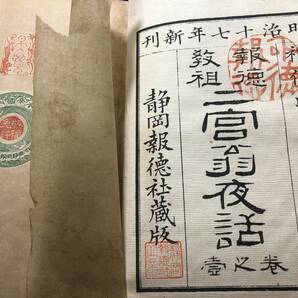 明治十七年新刊
報徳教祖
二宮翁夜話
巻之壹
静岡報徳社蔵版